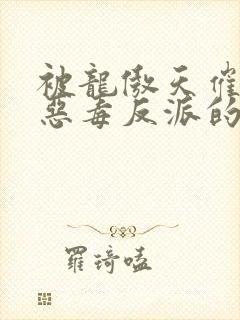 被龍傲天催
惡毒反派的
羅琦嗑